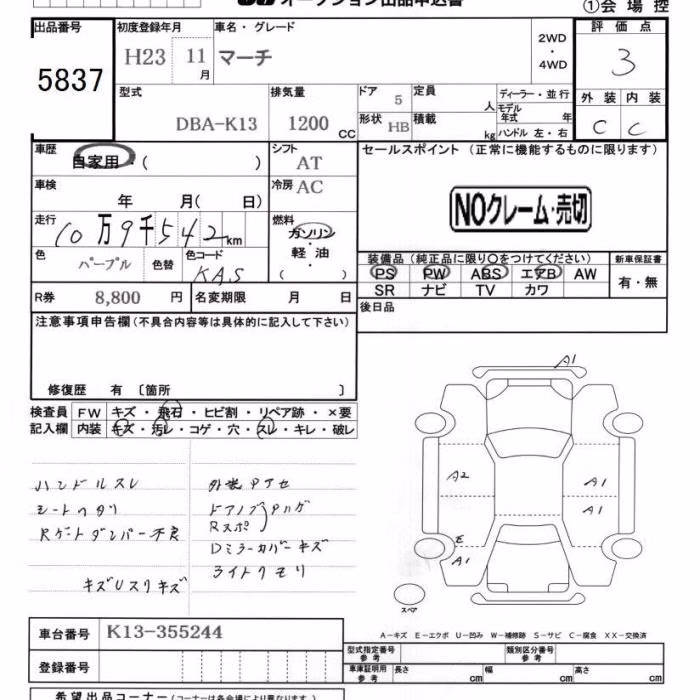 オークション出品申込書
①会場控
出品番号
5837
初度登録年月
H23 11月
車名・グレード
マーチ
2WD
・
4WD
評価点
3
型式
DBA-K13
排気量
1200 CC
ドア
5
形状 HB
定員
人
積載
kg
ディーラー・並行
モデル年式 年
ハンドル 左・右
外装 内装
C C
車歴
自家用・( )
シフト
AT
車検
年 月( 日)
冷房 AC
走行
10万9千542km
燃料
ガソリン
軽油
( )
色
パープル
色替
色コード
KAS
R券 8,800 円
名変期限 月 日
セールスポイント (正常に機能するものに限ります)
NOクレーム・売切
装備品(純正品に限り○をつけてください)
PS PW ABS エアB AW
SR ナビ TV カワ
新車保証書
有・無
後日品
注意事項申告欄(不具合内容等は具体的に記入して下さい)
修復歴 有 〔箇所 〕
検査員 FW キズ・飛石・ヒビ割・リペア跡・×要
記入欄 内装 キズ・汚レ・コゲ・穴・スレ・キレ・破レ
ハンドルスレ
シートヘタリ
Rゲートダンパー不良
キズUスリキズ
外装アセ
ドアノブ ハゲ
Rスポ
Dミラーカバーキズ
ライトクモリ
A1
A2
A1
A1
E
A1
スペア
A-キズ E-エクボ U-凹み W-補修跡 S-サビ C-腐食 XX-交換済
車台番号 K13-355244
登録番号
型式指定番号
参考
類別区分番号
参考
車庫証明用
参考
長さ cm 幅 cm 高さ cm
希望出品コーナー(コーナーは各会場により異なります)